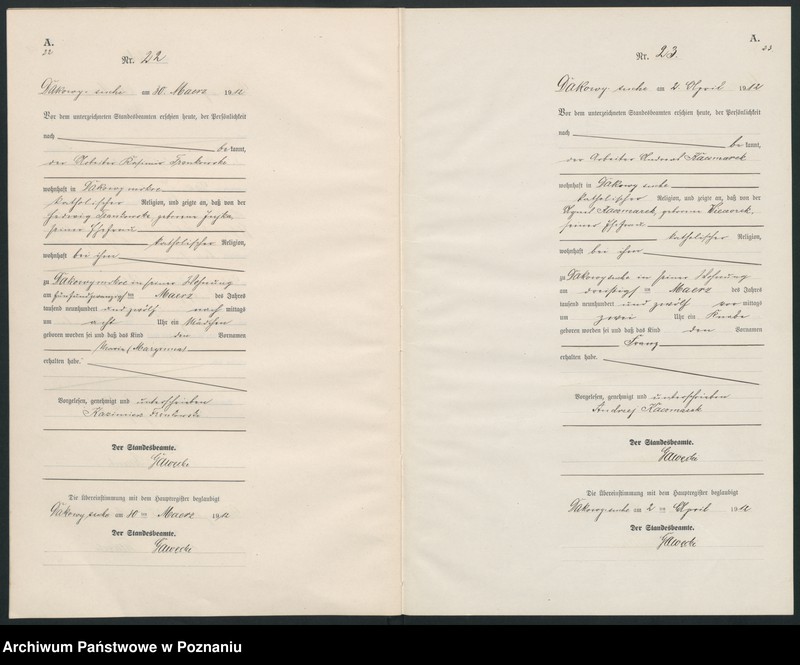 A.
22
Nr. 22
Dakowy suche am 30. Maerz 1912
Vor dem unterzeichneten Standesbeamten erschien heute, der Persönlichkeit
nach
be kannt,
der Arbeiter Kasimir
wohnhaft in Dakowy mokre
katholischer Religion, und zeigte an, daß von der
Hedwig geborene
seiner Ehefrau
katholischer Religion,
wohnhaft bei ihm
zu Dakowy mokre in seiner Wohnung
am fünfundzwanzigsten Maerz des Jahres
tausend neunhundert und zwölf nach mittags
um acht Uhr ein Mädchen
geboren worden sei und daß das Kind den Vornamen
erhalten habe.
Vorgelesen, genehmigt und unterschrieben
Kazimierz
Der Standesbeamte.
Die Übereinstimmung mit dem Hauptregister beglaubigt
Dakowy suche am 30 ten Maerz 1912
Der Standesbeamte.
A.
23
Nr. 23.
Dakowy suche am 2. April 1912
Vor dem unterzeichneten Standesbeamten erschien heute, der Persönlichkeit
nach
be kannt,
der Arbeiter Andreas Kaczmarek
wohnhaft in Dakowy suche
katholischer Religion, und zeigte an, daß von der
Agnes Kaczmarek, geborene
seiner Ehefrau
katholischer Religion,
wohnhaft bei ihm
zu Dakowy suche in seiner Wohnung
am dreißigsten Maerz des Jahres
tausend neunhundert und zwölf vor mittags
um zwei Uhr ein Knabe
geboren worden sei und daß das Kind den Vornamen
Franz
erhalten habe.
Vorgelesen, genehmigt und unterschrieben
Andrzej Kaczmarek
Der Standesbeamte.
Die Übereinstimmung mit dem Hauptregister beglaubigt
Dakowy suche am 2 ten April 1912
Der Standesbeamte.
Archiwum Państwowe w Poznaniu